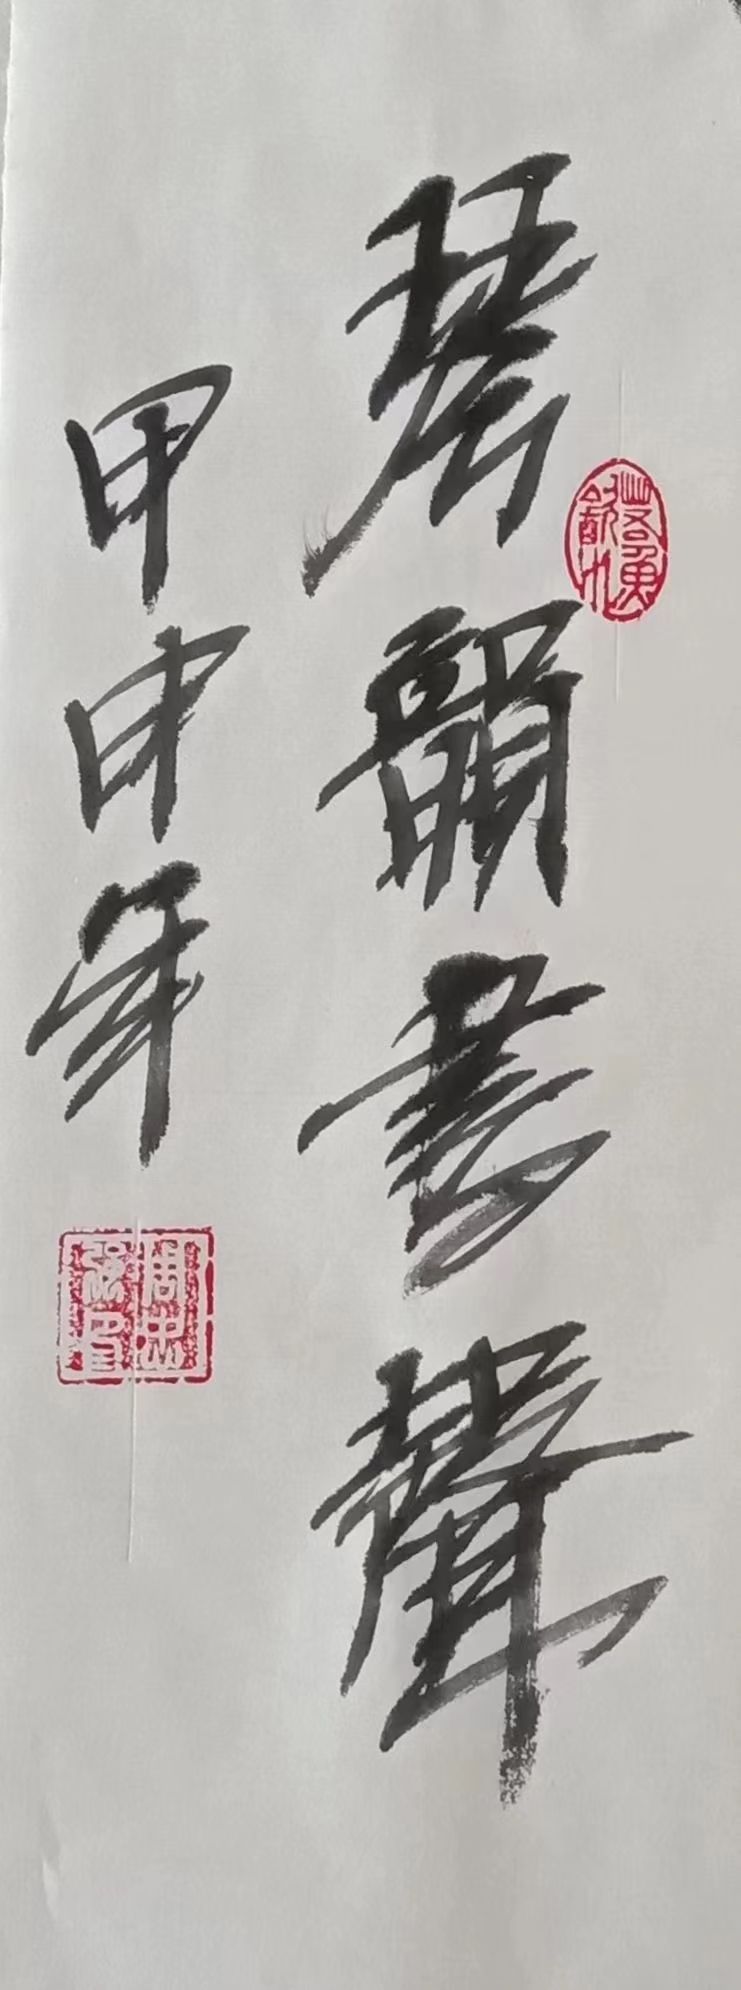 琴韻書聲
甲申年